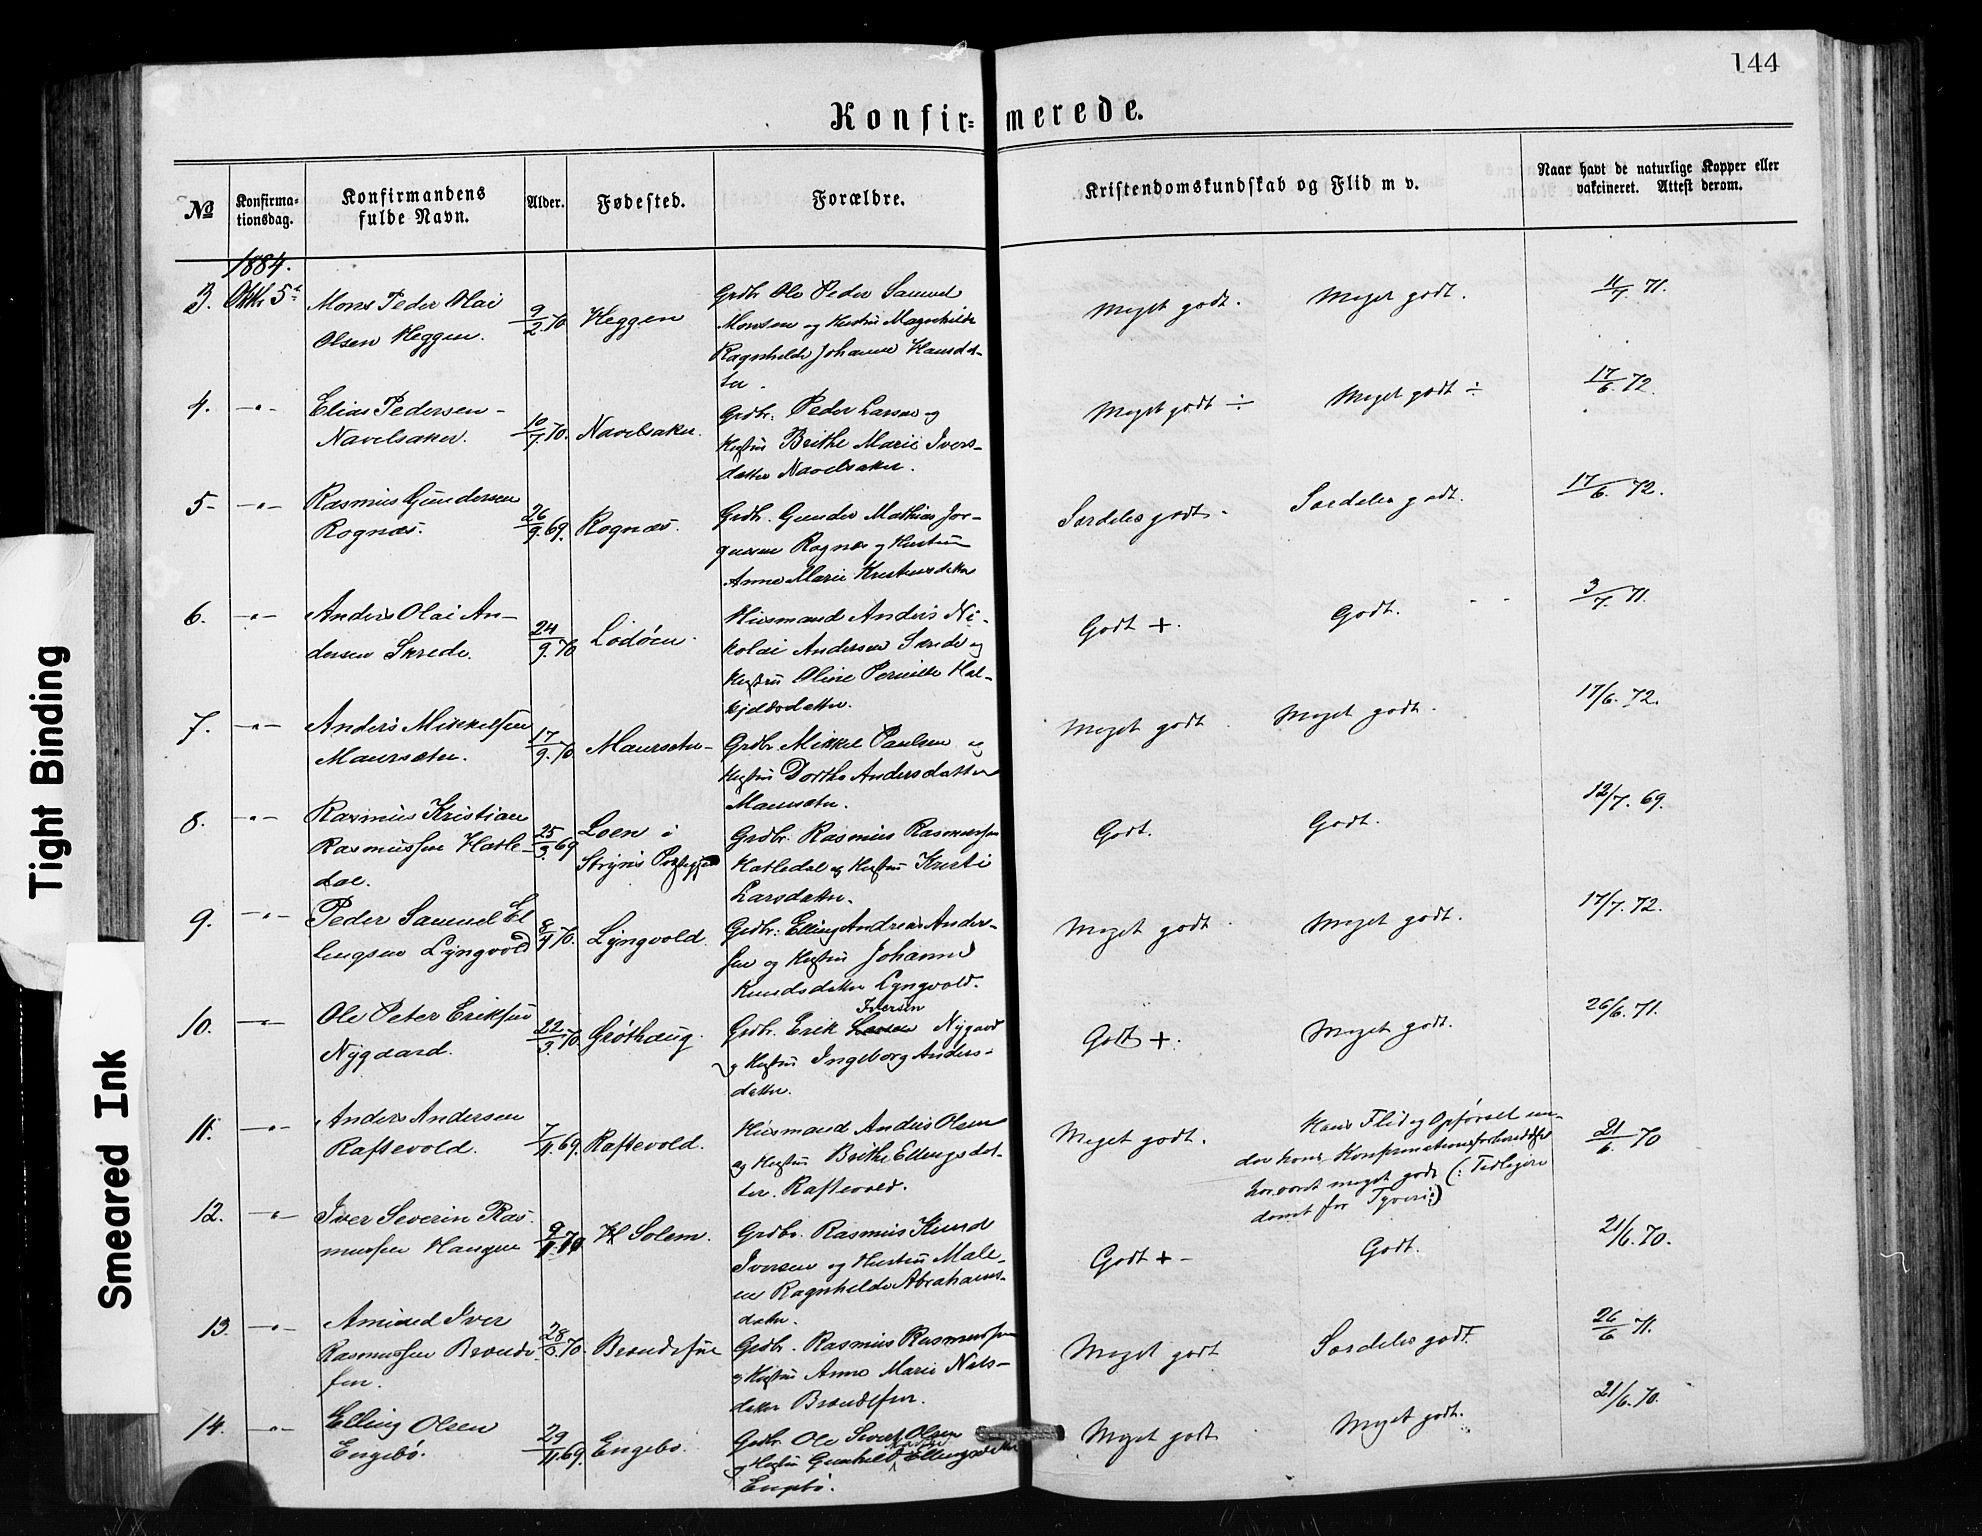 144
Konfir= merede.
№
Konfirma-
tionsdag.
Konfirmandens
fulde Navn.
Alder.
Fødested.
Forældre.
Kristendomskundskab og Flid m v.
Naar havt de naturlige Kopper eller
vakcineret. Attest derom.
1884.
3. Oktbr 5te Mons Peder Olai 9/2 70 Heggen Grdbr Ole Peder Samuel Meget godt. Meget godt. 11/7. 71.
Olsen Heggen. Monsen og Hustru Magnhilde
Ragnhilde Johanne Hansdat-
ter.
4. –"– Elias Pedersen 10/7 70. Navelsaker. Grdbr. Peder Larsen og Meget godt ÷ Meget godt ÷ 17/6. 72.
Navelsaker. Hustru Brithe Marie Ivers-
datter Navelsaker.
5- –"– Rasmus Gundersen 26/9. 69. Rognæs. Grdbr. Gunder Mathias Jør- Særdeles godt. Særdeles godt. 17/6. 72.
Rognæs. gensen Rognæs og Hustru
Anne Marie
6. –"– Anders Olai An- 24/9. 70 Lødøen. Husmand Anders Ni- Godt +. Godt. 3/7. 71.
dersen Skrede. kolai Andersen Skrede og
Hustru Oline Pernille Hal-
kjeldsdatter.
7. –"– Anders Mikkelsen 17/9. 70 Maursæter Grdbr Mikkel Paulsen og Meget godt Meget godt. 17/6. 72.
Maursæter. Hustru Dorthe Andersdatter
Maursæter.
8. –"– Rasmus Kristian 25/3. 69 Loen i Grdbr. Rasmus Rasmussen Godt. Godt. 12/7. 69.
Rasmussen Hatle- Stryns Hatledal og Hustru Kristi
dal. Larsdatter.
9. –"– Peder Samuel El 8/4 70. Lyngvold. Grdbr: Elling Andreas Anders- Meget godt Meget godt. 17/7. 72.
lingsen Lyngvold sen og Hustru Johanne
Knudsdatter Lyngvold.
Iversen
10. –"– Ole Peter Eriksen 22/3. 70 Grøthaug. Grdbr. Erik Larsen Nygård Godt +. Meget godt. 26/6. 71.
Nygaard. og Hustru Ingeborg Anders-
datter.
11. –"– Anders Andersen 7/11 69. Raftevold. Husmand Anders Olsen Meget godt. Hans Flid og Opførsel un- 21/6. 70
Raftevold. og Hustru Brithe Ellingsdat- der hans Konfirmationsforberedelse
ter. Raftevold. har været meget godt (: Tidligere
dømt for Tyveri:)
12. –"– Iver Severin Ras- Solem. Grdbr. Rasmus Knud Godt + - Godt. 21/6. 70.
mussen Haugen Iversen og Hustru Male-
ne Ragnhilde Abrahams-
datter.
13. –"– Amund Iver 70. Brændefur Grdbr. Rasmus Rasmussen Meget godt Særdeles godt. 26/6 71.
Rasmussen Brænde- og Hustru Anne Marie Nils-
fur. datter Brændefur.
14. –"– Elling Olsen 29/11 69. Engebø. Grdbr. Ole Sivert Olsen Meget godt Meget godt. 21/6. 70.
Engebø. og Hustru Gunhild Ellingsdatter
Engebø.
Tight Binding
Smeared Ink